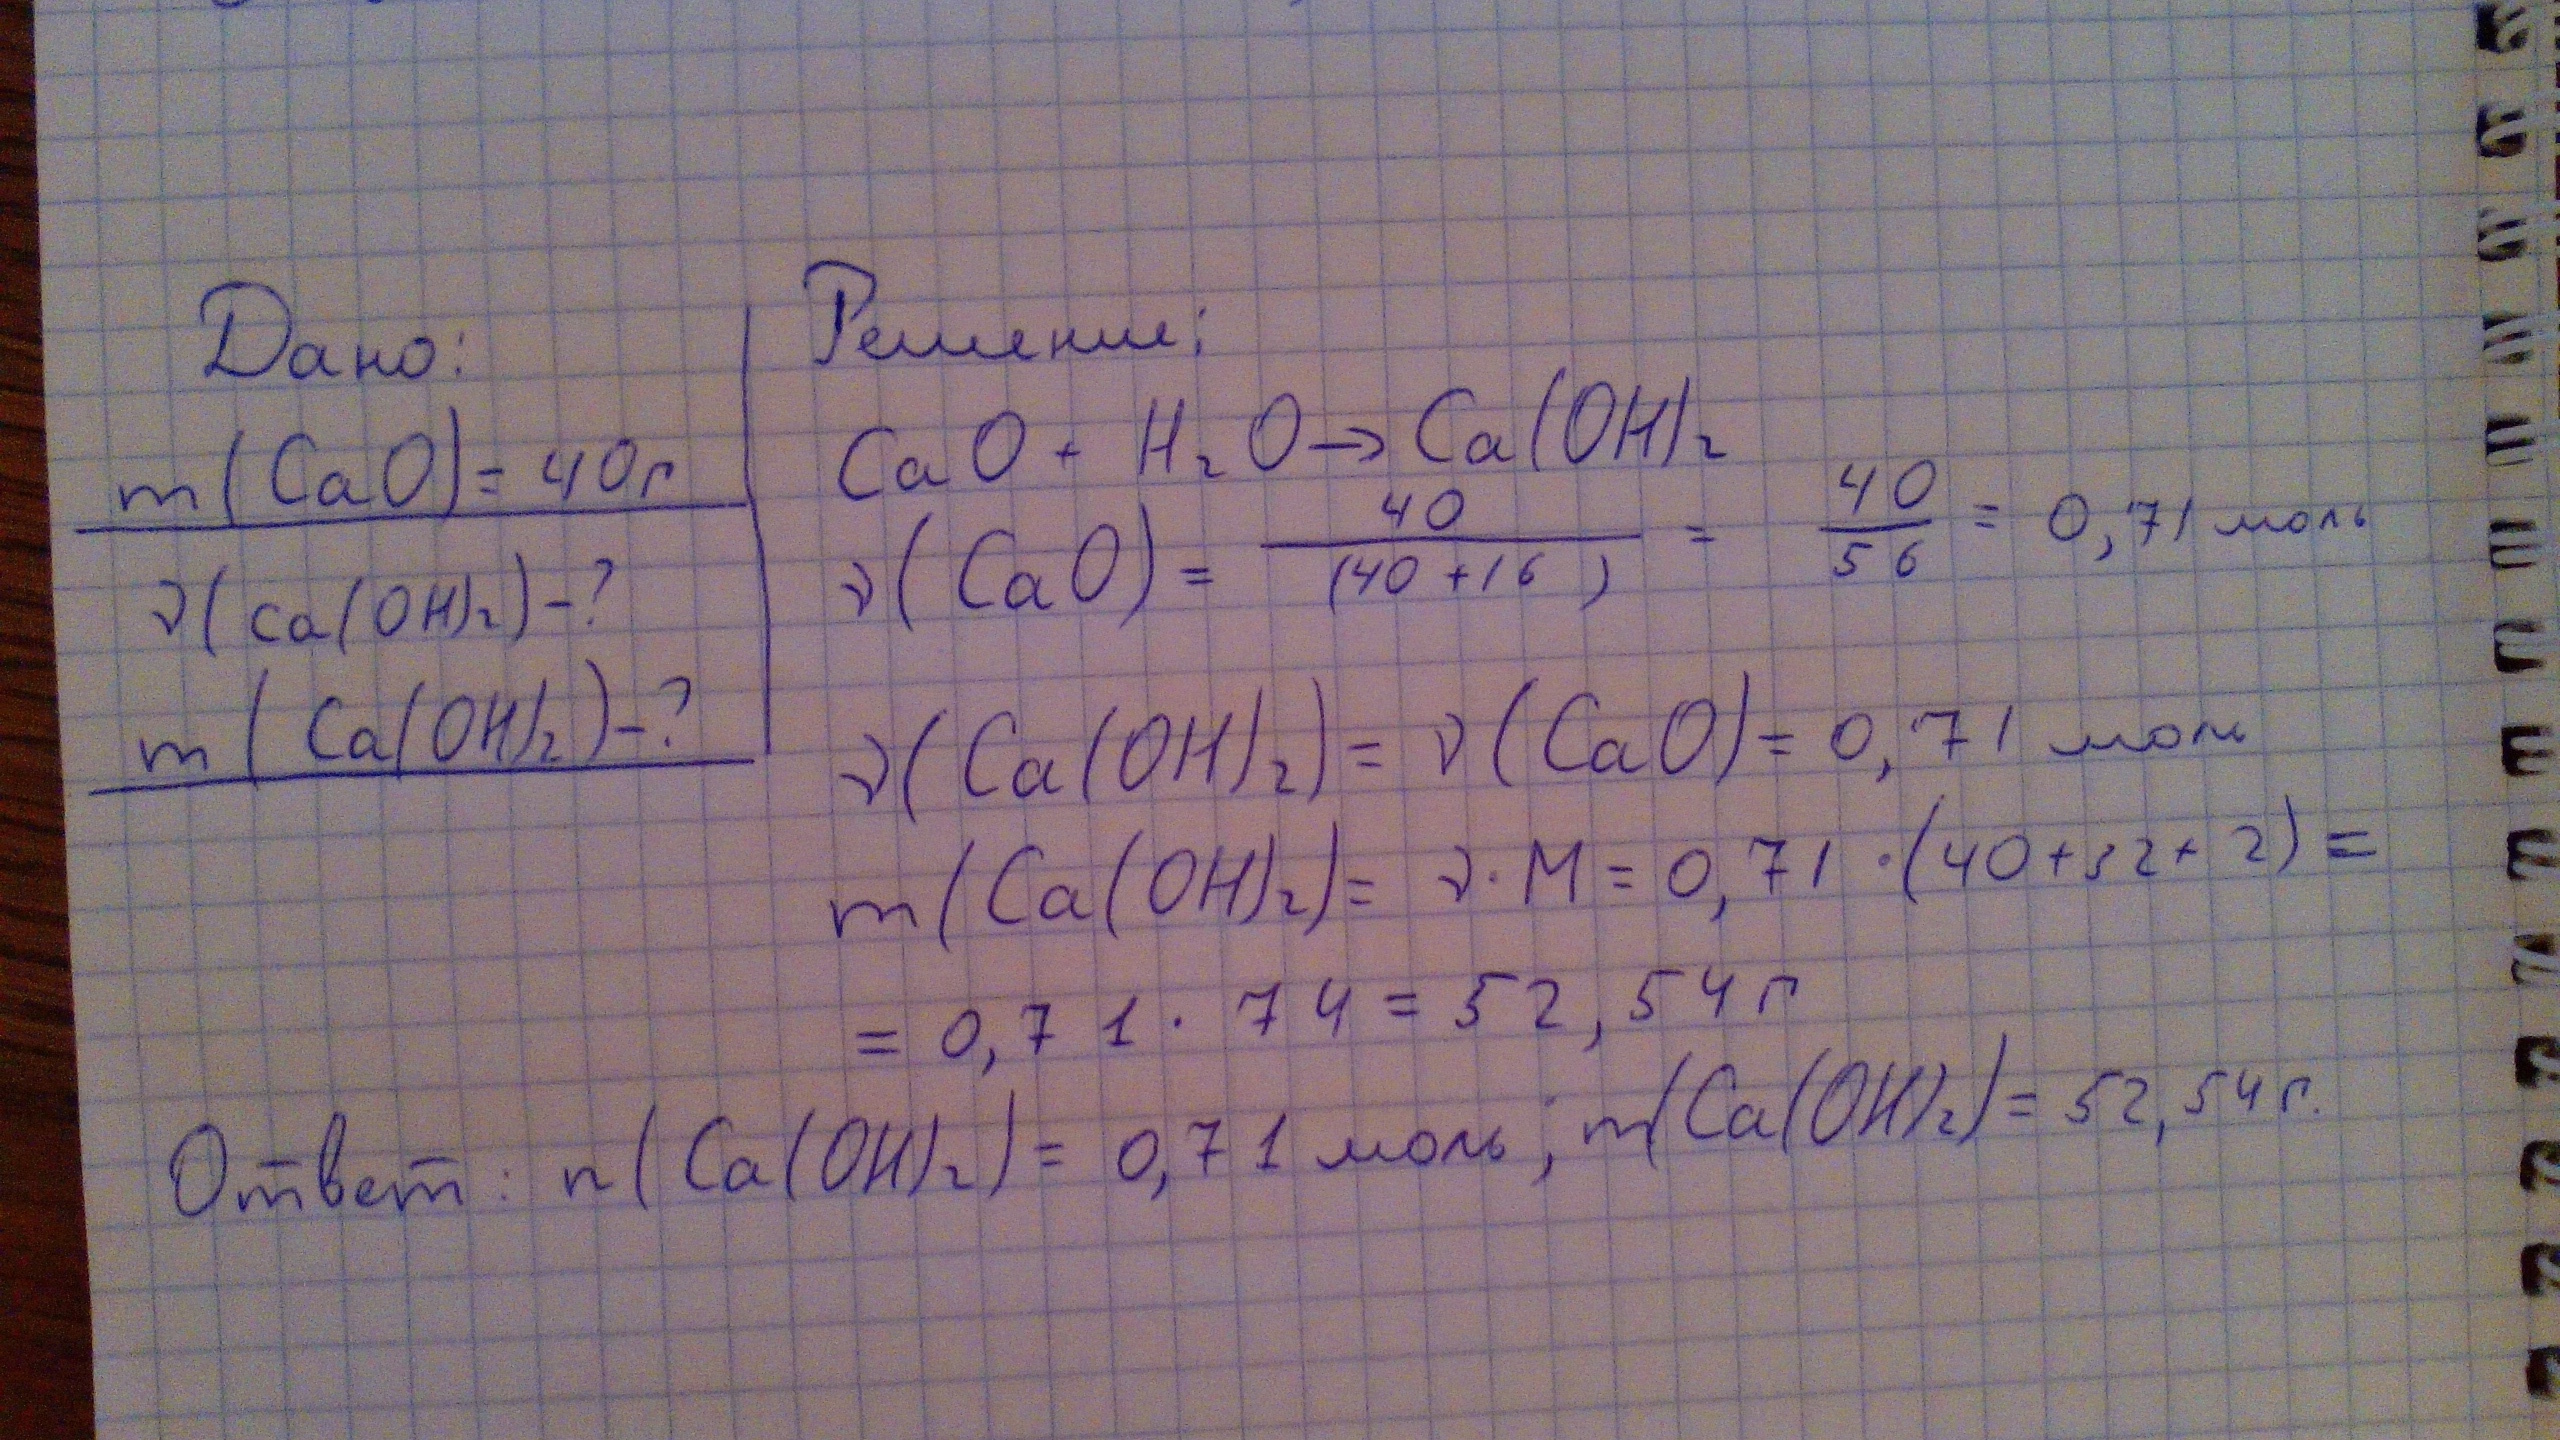 Дано:
m(CaO)= 40г
ν(Ca(OH)₂)-?
m(Ca(OH)₂)-?
Решение:
CaO + H₂O→Ca(OH)₂
ν(CaO)= 40/(40+16) = 40/56 = 0,71 моль
ν(Ca(OH)₂)= ν(CaO)= 0,71 моль
m(Ca(OH)₂)= ν·M = 0,71·(40+32+2)=
= 0,71·74 = 52,54г
Ответ: n(Ca(OH)₂)= 0,71 моль; m(Ca(OH)₂)= 52,54г.